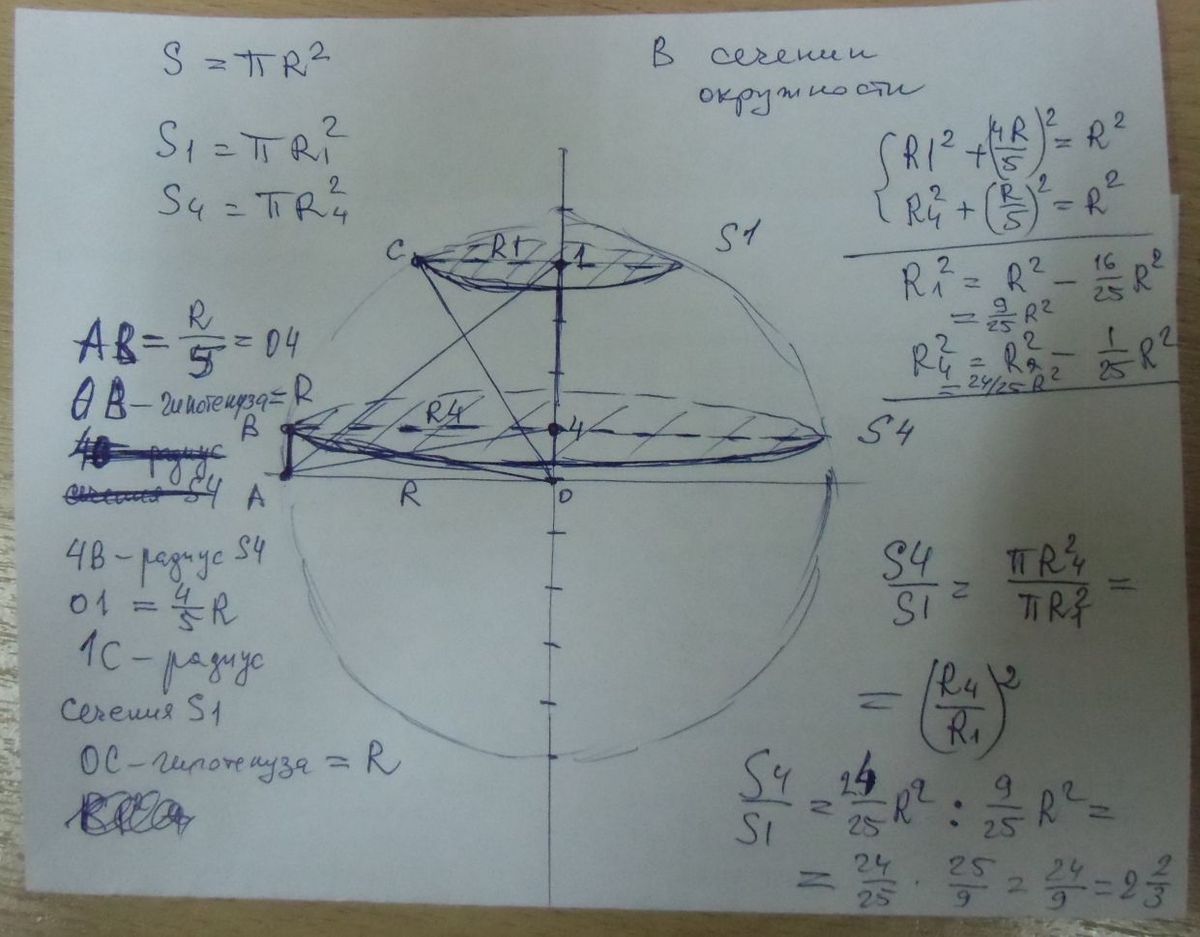 S = πR²
S1 = πR₁²
S4 = πR₄²
В сечении
окружности
R1² + (4R/5)² = R²
R₄² + (R/5)² = R²
R₁² = R² − 16/25 R²
= 9/25 R²
R₄² = R² − 1/25 R²
= 24/25 R²
C
R1
1
S1
B
R4
4
S4
A
R
O
AB = R/5 = O4
OB – гипотенуза = R
4B – радиус S4
O1 = 4/5 R
1C – радиус
сечения S1
OC – гипотенуза = R
S4/S1 = πR₄²/πR₁² =
= (R4/R1)²
S4/S1 = 24/25 R² : 9/25 R² =
= 24/25 · 25/9 = 24/9 = 2 2/3